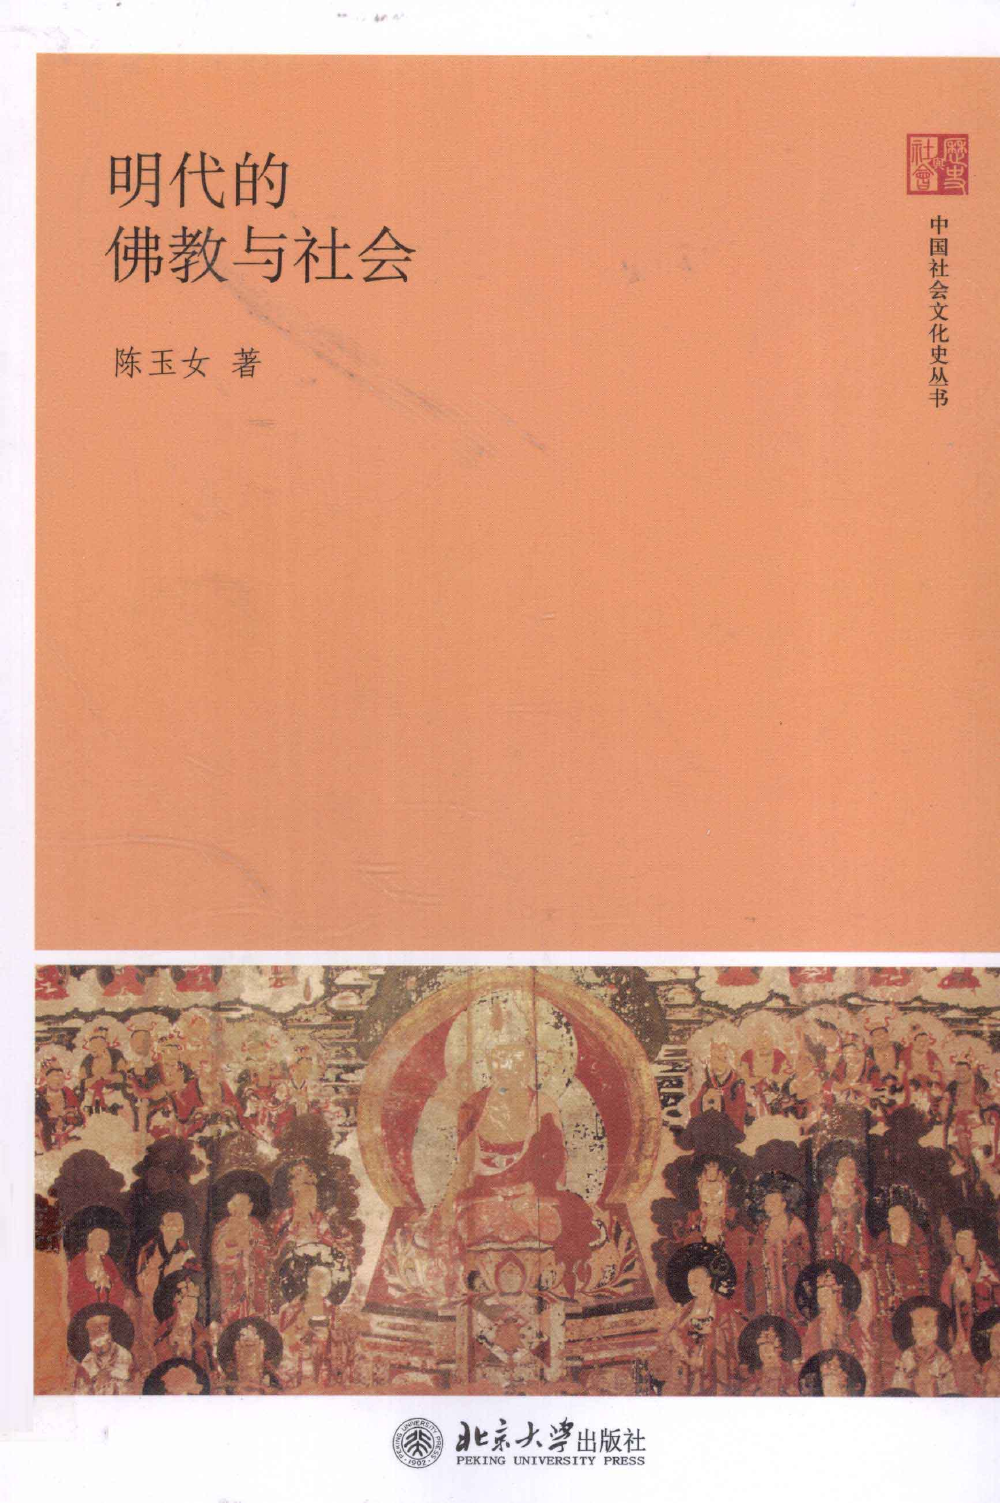 明代的
佛教与社会
陈玉女 著
歷史與社會
中国社会文化史丛书
北京大学出版社
PEKING UNIVERSITY PRESS
PEKING UNIVERSITY PRESS
1902